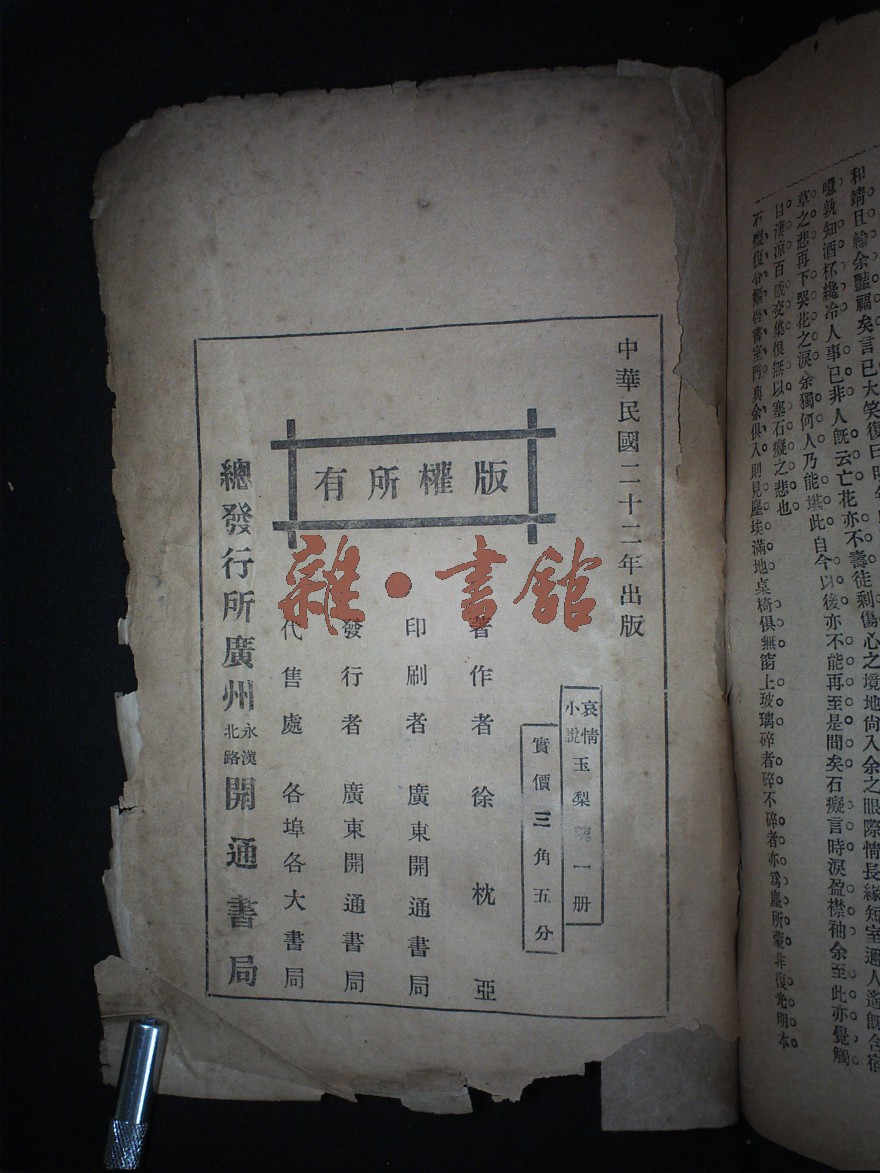 中華民國二十二年出版
版權所有
哀情小說玉梨魂一册
實價三角五分
著作者 徐枕亞
印刷者 廣東開通書局
發行者 廣東開通書局
代售處 各埠各大書局
總發行所廣州永漢北路開通書局
雜·書館
和靖且輸余豔福矣言已大笑復曰明年
噫孰知酒杯纔冷人事已非人既云亡花亦不壽徒剩傷心之境地尙入余之眼際情長緣短室邇人遙旣含宿
草之悲再下哭花之淚余獨何人乃能堪此自今以後亦不能再至是間矣石癡言時淚盈襟袖余至此亦覺觸
目淒涼百感交集恨無以塞石癡之悲也
石癡復啓書室門與余俱入則見塵埃滿地桌椅俱無窗上玻璃碎者碎不碎者亦爲塵所蒙非復光明本